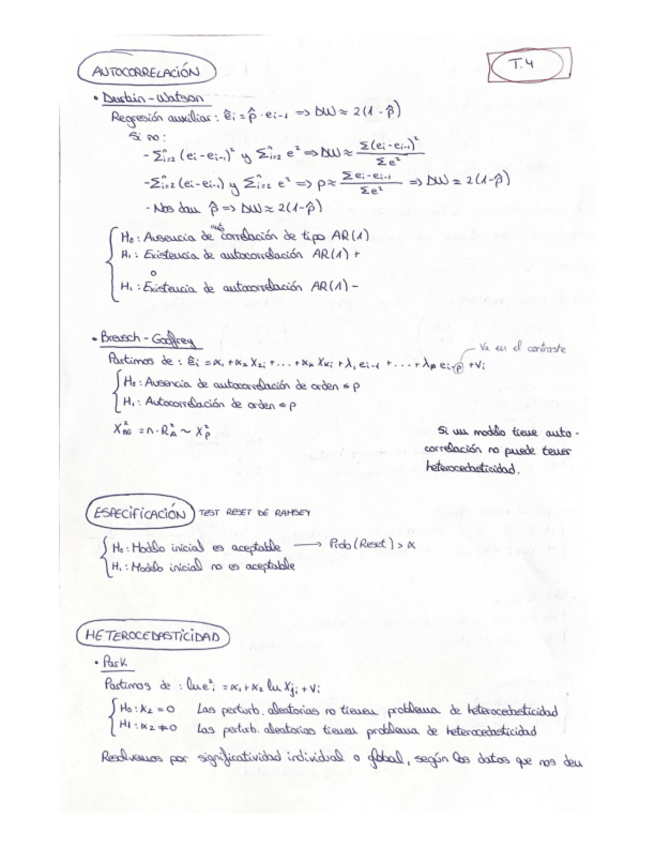 AUTOCORRELACIÓN
T.4
• Durbin-Watson
Regresión auxiliar: êi = ρ̂ · ei-1 => DW ≈ 2(1-ρ̂)
Si no:
- Σⁿi=2 (ei-ei-1)² y Σⁿi=2 e² => DW ≈ Σ(ei-ei-1)² / Σe²
- Σⁿi=2 (ei-ei-1) y Σⁿi=2 e² => ρ ≈ Σei-ei-1 / Σe² => DW ≈ 2(1-ρ̂)
- Nos dan ρ̂ => DW ≈ 2(1-ρ̂)
H₀: Ausencia de autocorrelación de tipo AR(1)
H₁: Existencia de autocorrelación AR(1) +
o
H₁: Existencia de autocorrelación AR(1) -
• Breusch-Godfrey
Va en el contraste
Partimos de: êi = α₁ + α₂ X₂i + ... + αk Xki + λ₁ ei-1 + ... + λp ei-p + Vi
H₀: Ausencia de autocorrelación de orden p
H₁: Autocorrelación de orden p
X²BG = n · R²A ~ X²p
Si un modelo tiene auto-
correlación no puede tener
heterocedasticidad.
ESPECIFICACIÓN TEST RESET DE RAMSEY
H₀: Modelo inicial es aceptable → Prob(Reset) > α
H₁: Modelo inicial no es aceptable
HETEROCEDASTICIDAD
• Park
Partimos de: ln e²i = α₁ + α₂ ln Xji + Vi
H₀: α₂ = 0 Las perturb. aleatorias no tienen problema de heterocedasticidad
H1: α₂ ≠ 0 Las perturb. aleatorias tienen problema de heterocedasticidad
Resolvemos por significatividad individual o global, según los datos que nos den